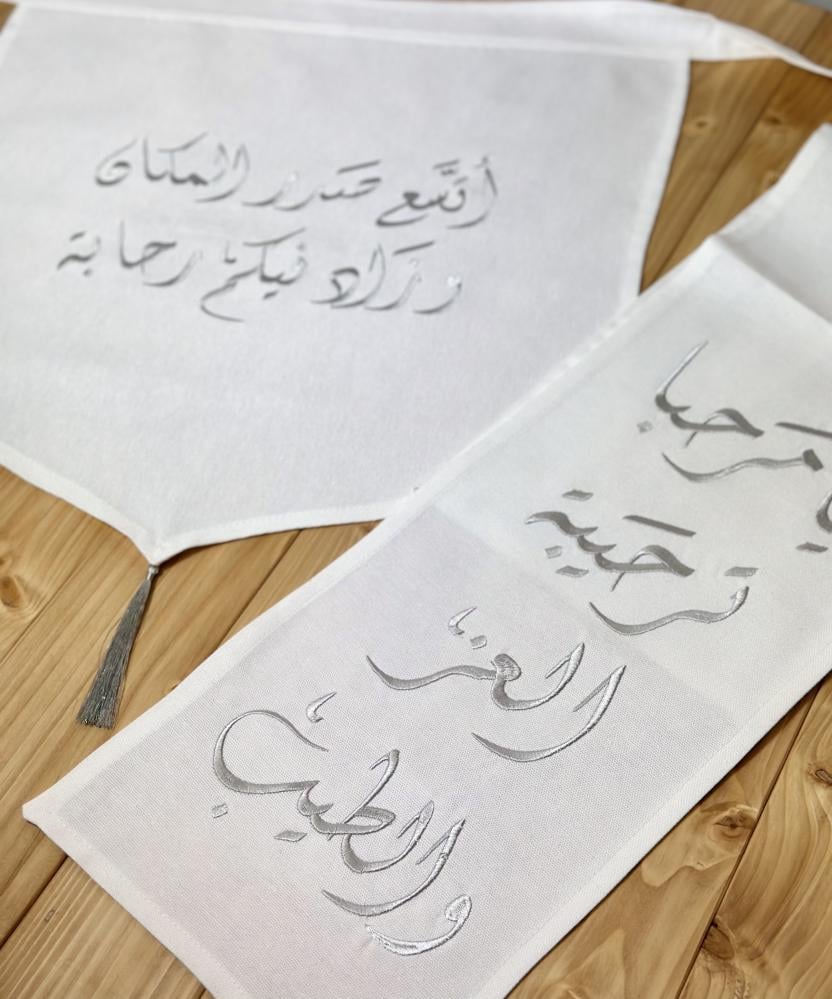 أتسَّع صدر المكان
وزاد فيكم رحابة
يا مرحبا
ترحيبة
العز
والطيب